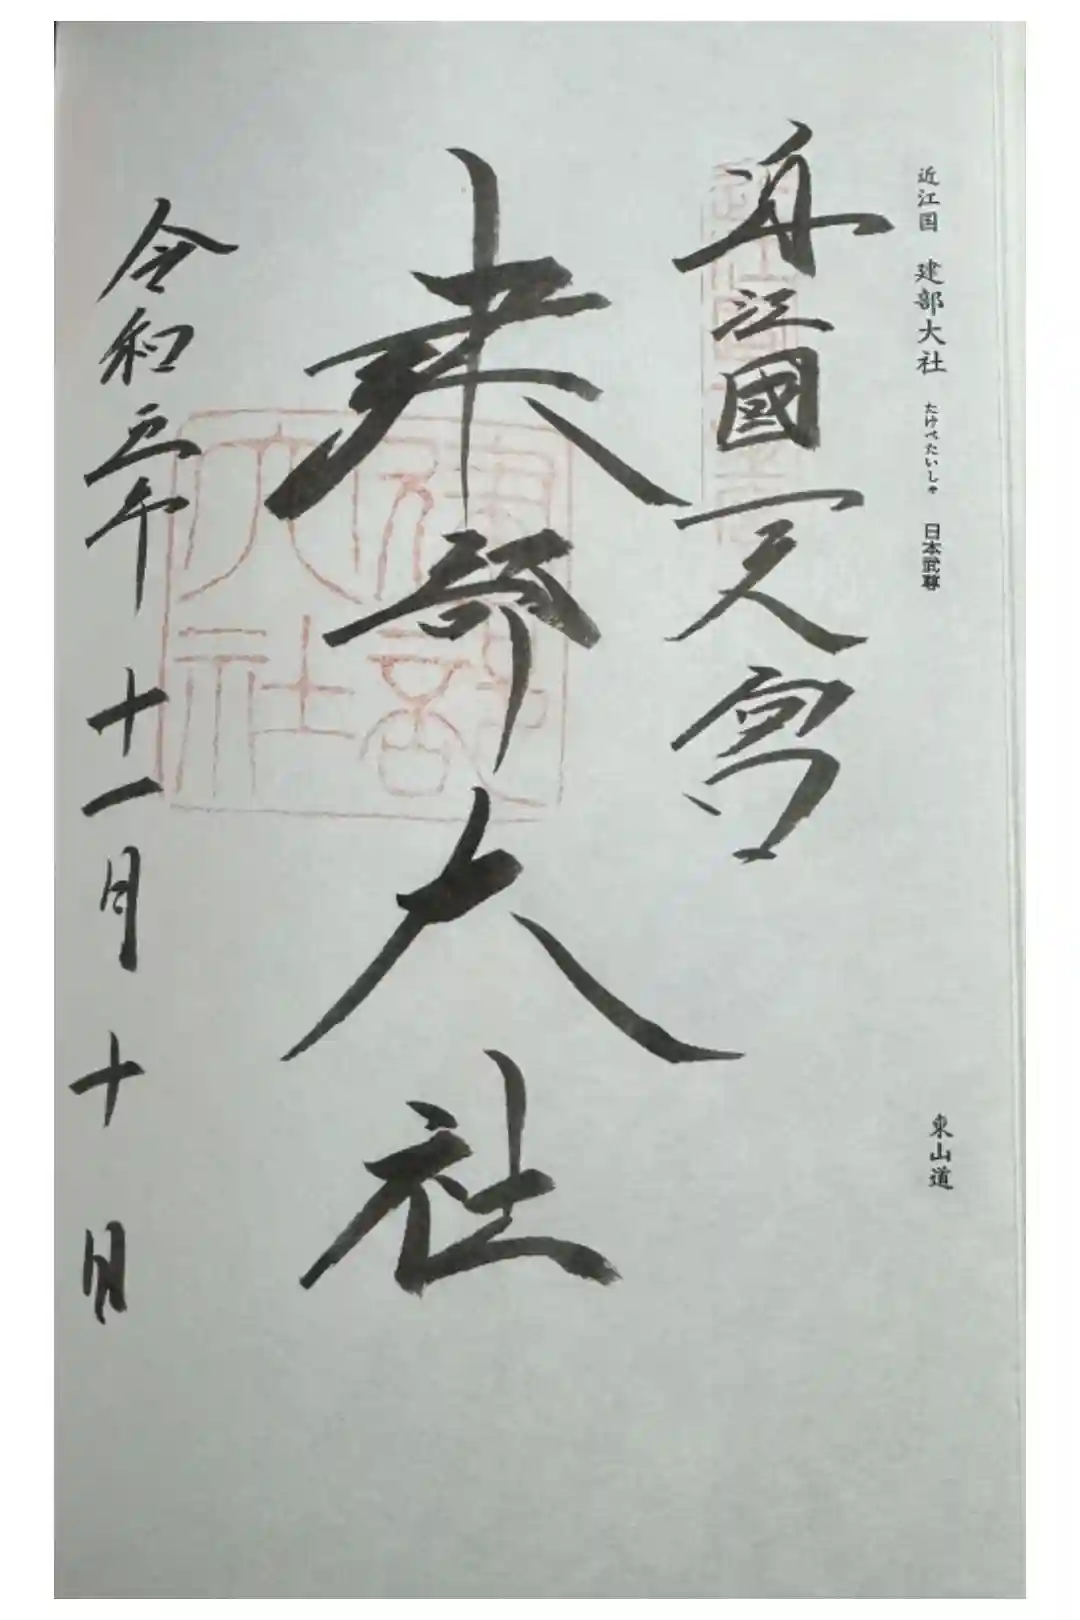 近江国 建部大社 たけべたいしゃ 日本武尊
東山道
近江國一之宮
建部大社
令和五年 十一月 十日
建部大社